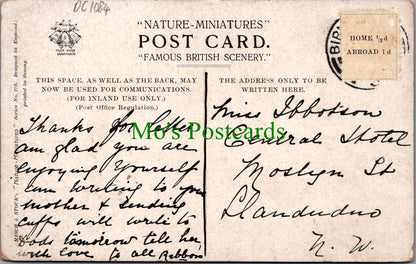 DC1084
"NATURE-MINIATURES"
POST CARD.
"FAMOUS BRITISH SCENERY."
HOME ½d
ABROAD 1d
BIR
THIS SPACE, AS WELL AS THE BACK, MAY
NOW BE USED FOR COMMUNICATIONS.
(FOR INLAND USE ONLY.)
(Post Office Regulation.)
THE ADDRESS ONLY TO BE
WRITTEN HERE.
Thanks for letter
am glad you are
enjoying Yourself
am writing to your
mother & sending
cuffs will write to
tomorrow tell her
with love to all
Miss Ibbotson
Central Hotel
Mostyn St
Llandudno
N. W.
Mo's Postcards